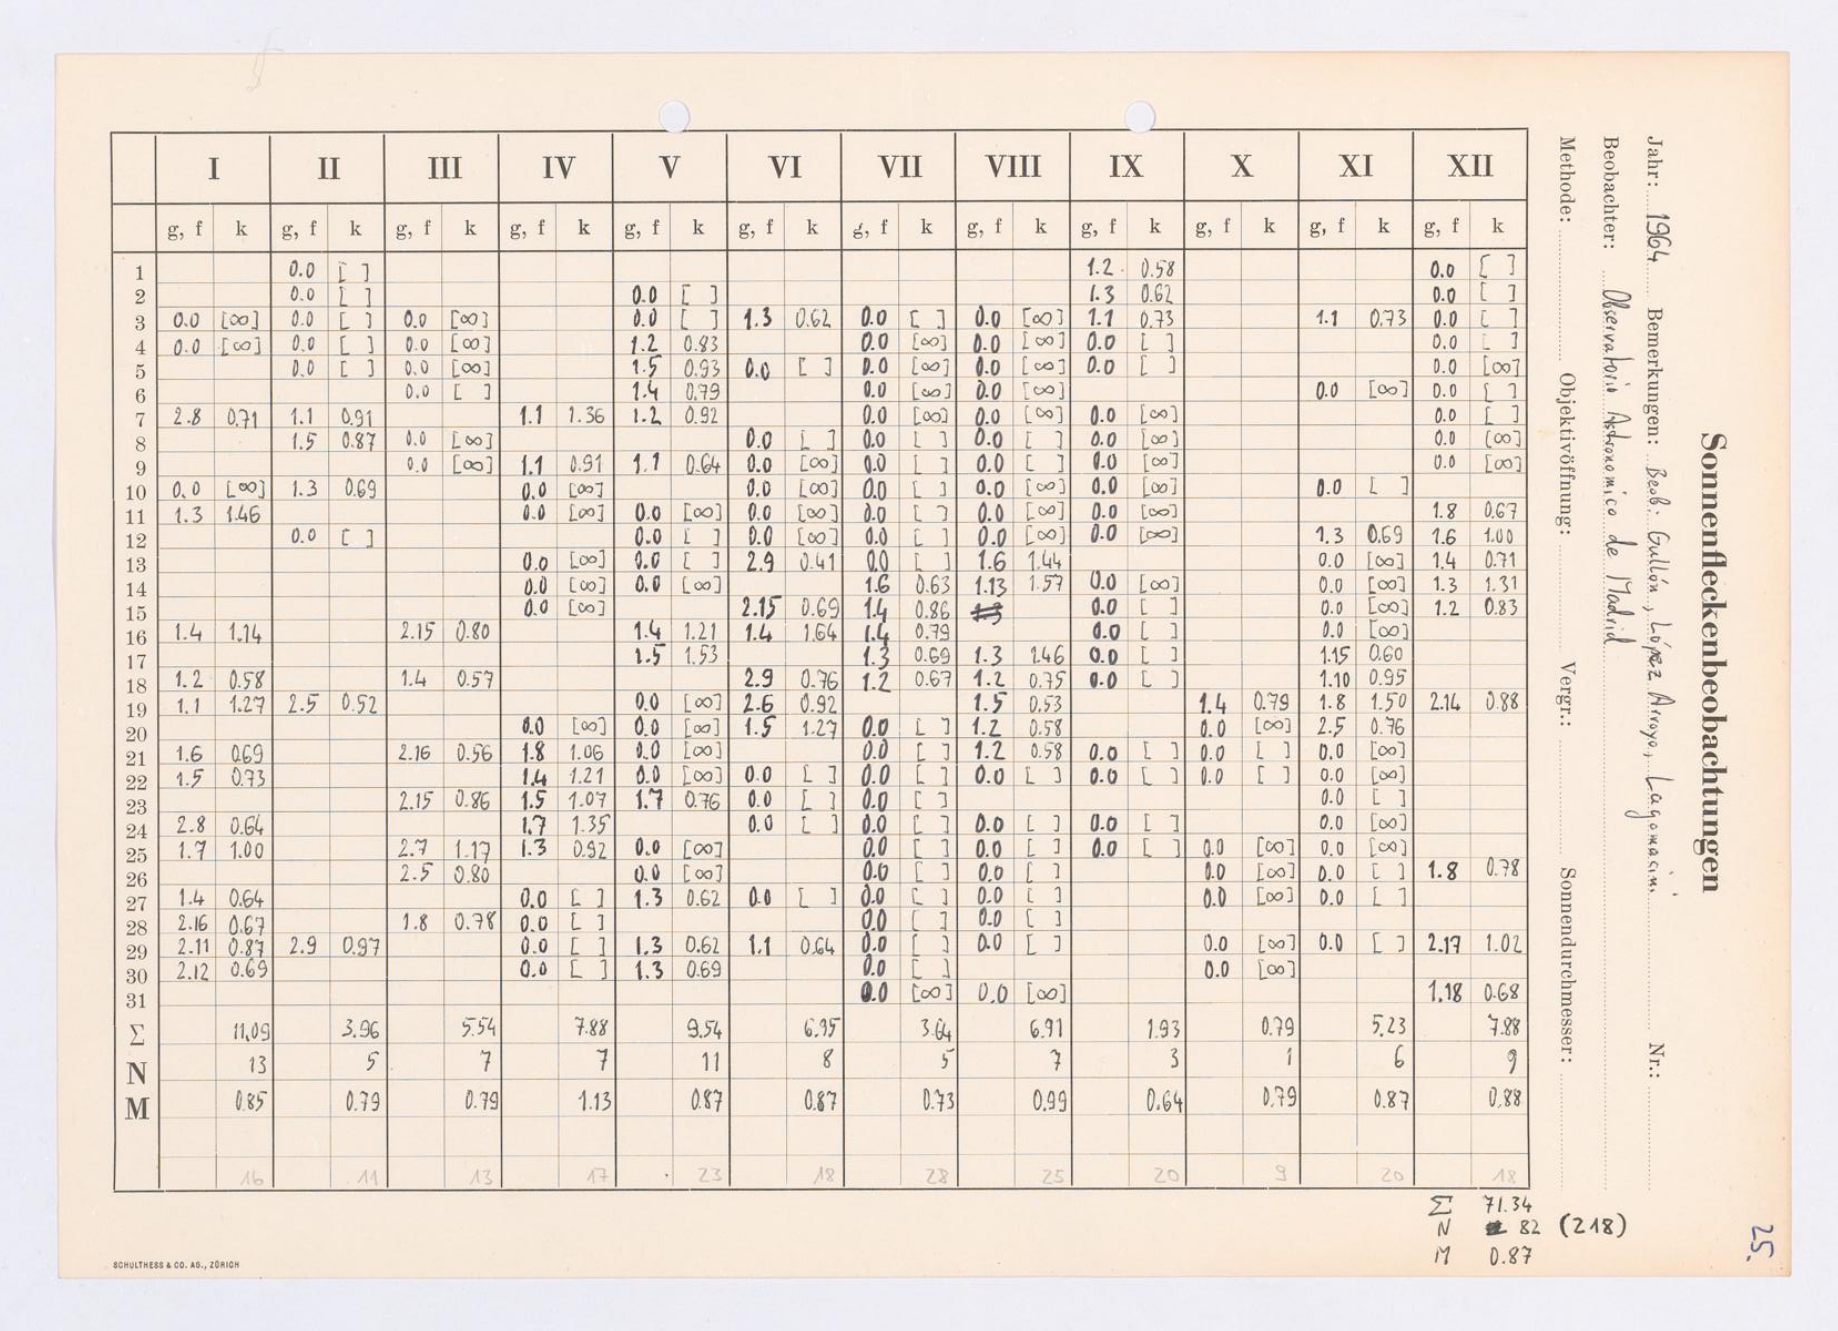 Sonnenfleckenbeobachtungen
Jahr: 1964 Bemerkungen: Beob: Gullón, López Arroyo, Lagomacini Nr.:
Beobachter: Observatorio Astronomico de Madrid
Methode: Objektivöffnung: Vergr.: Sonnendurchmesser:
I II III IV V VI VII VIII IX X XI XII
g, f k g, f k g, f k g, f k g, f k g, f k g, f k g, f k g, f k g, f k g, f k g, f k
1 0.0 [ ] 1.2 0.58 0.0 [ ]
2 0.0 [ ] 0.0 [ ] 1.3 0.62 0.0 [ ]
3 0.0 [∞] 0.0 [ ] 0.0 [∞] 0.0 [ ] 1.3 0.62 0.0 [ ] 0.0 [∞] 1.1 0.73 1.1 0.73 0.0 [ ]
4 0.0 [∞] 0.0 [ ] 0.0 [∞] 1.2 0.83 0.0 [∞] 0.0 [∞] 0.0 [ ] 0.0 [ ]
5 0.0 [ ] 0.0 [∞] 1.5 0.93 0.0 [ ] 0.0 [∞] 0.0 [∞] 0.0 [ ] 0.0 [∞]
6 0.0 [ ] 1.4 0.79 0.0 [∞] 0.0 [∞] 0.0 [∞] 0.0 [ ]
7 2.8 0.71 1.1 0.91 1.1 1.36 1.2 0.92 0.0 [∞] 0.0 [∞] 0.0 [∞] 0.0 [ ]
8 1.5 0.87 0.0 [∞] 0.0 [ ] 0.0 [ ] 0.0 [ ] 0.0 [∞] 0.0 [∞]
9 0.0 [∞] 1.1 0.91 1.1 0.64 0.0 [∞] 0.0 [ ] 0.0 [ ] 0.0 [∞] 0.0 [∞]
10 0.0 [∞] 1.3 0.69 0.0 [∞] 0.0 [∞] 0.0 [ ] 0.0 [∞] 0.0 [∞] 0.0 [ ]
11 1.3 1.46 0.0 [∞] 0.0 [∞] 0.0 [∞] 0.0 [ ] 0.0 [∞] 0.0 [∞] 1.8 0.67
12 0.0 [ ] 0.0 [ ] 0.0 [∞] 0.0 [ ] 0.0 [∞] 0.0 [∞] 1.3 0.69 1.6 1.00
13 0.0 [∞] 0.0 [ ] 2.9 0.41 0.0 [ ] 1.6 1.44 0.0 [∞] 1.4 0.71
14 0.0 [∞] 0.0 [∞] 1.6 0.63 1.13 1.57 0.0 [∞] 0.0 [∞] 1.3 1.31
15 0.0 [∞] 2.15 0.69 1.4 0.86 0.0 [ ] 0.0 [∞] 1.2 0.83
16 1.4 1.14 2.15 0.80 1.4 1.21 1.4 1.64 1.4 0.79 0.0 [ ] 0.0 [∞]
17 1.5 1.53 1.3 0.69 1.3 1.46 0.0 [ ] 1.15 0.60
18 1.2 0.58 1.4 0.57 2.9 0.76 1.2 0.67 1.2 0.75 0.0 [ ] 1.10 0.95
19 1.1 1.27 2.5 0.52 0.0 [∞] 2.6 0.92 1.5 0.53 1.4 0.79 1.8 1.50 2.14 0.88
20 0.0 [∞] 0.0 [∞] 1.5 1.27 0.0 [ ] 1.2 0.58 0.0 [∞] 2.5 0.76
21 1.6 0.69 2.16 0.56 1.8 1.06 0.0 [∞] 0.0 [ ] 1.2 0.58 0.0 [ ] 0.0 [ ] 0.0 [∞]
22 1.5 0.73 1.4 1.21 0.0 [∞] 0.0 [ ] 0.0 [ ] 0.0 [ ] 0.0 [ ] 0.0 [ ] 0.0 [∞]
23 2.15 0.86 1.5 1.07 1.7 0.76 0.0 [ ] 0.0 [ ] 0.0 [ ]
24 2.8 0.64 1.7 1.35 0.0 [ ] 0.0 [ ] 0.0 [ ] 0.0 [ ] 0.0 [∞]
25 1.7 1.00 2.7 1.17 1.3 0.92 0.0 [∞] 0.0 [ ] 0.0 [ ] 0.0 [ ] 0.0 [∞] 0.0 [∞]
26 2.5 0.80 0.0 [∞] 0.0 [ ] 0.0 [ ] 0.0 [∞] 0.0 [ ] 1.8 0.78
27 1.4 0.64 0.0 [ ] 1.3 0.62 0.0 [ ] 0.0 [ ] 0.0 [ ] 0.0 [∞] 0.0 [ ]
28 2.16 0.67 1.8 0.78 0.0 [ ] 0.0 [ ] 0.0 [ ]
29 2.11 0.87 2.9 0.97 0.0 [ ] 1.3 0.62 1.1 0.64 0.0 [ ] 0.0 [ ] 0.0 [∞] 0.0 [ ] 2.17 1.02
30 2.12 0.69 0.0 [ ] 1.3 0.69 0.0 [ ] 0.0 [∞]
31 0.0 [∞] 0.0 [∞] 1.18 0.68
Σ 11,09 3.96 5.54 7.88 9.54 6.95 3.64 6.91 1.93 0.79 5.23 7.88
N 13 5 7 7 11 8 5 7 3 1 6 9
M 0.85 0.79 0.79 1.13 0.87 0.87 0.73 0.99 0.64 0.79 0.87 0.88
16 11 13 17 23 18 28 25 20 9 20 18
Σ 71.34
N 82 (218)
M 0.87
25.
SCHULTHESS & CO. AG., ZÜRICH